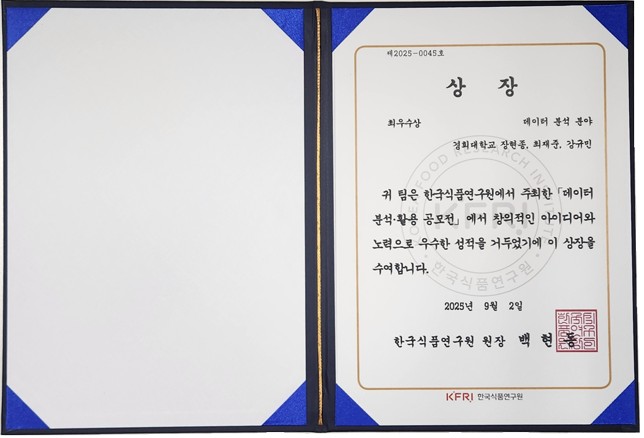 제2025-0045호
상 장
최우수상 데이터 분석 분야
경희대학교 장현종, 최재준, 강규민
귀 팀은 한국식품연구원에서 주최한 「데이터
분석·활용 공모전」에서 창의적인 아이디어와
노력으로 우수한 성적을 거두었기에 이 상장을
수여합니다.
KOREA FOOD RESEARCH INSTITUTE
KFRI
한국식품연구원
2025년 9월 2일
한국식품연구원 원장 백 현 동
KFRI 한국식품연구원